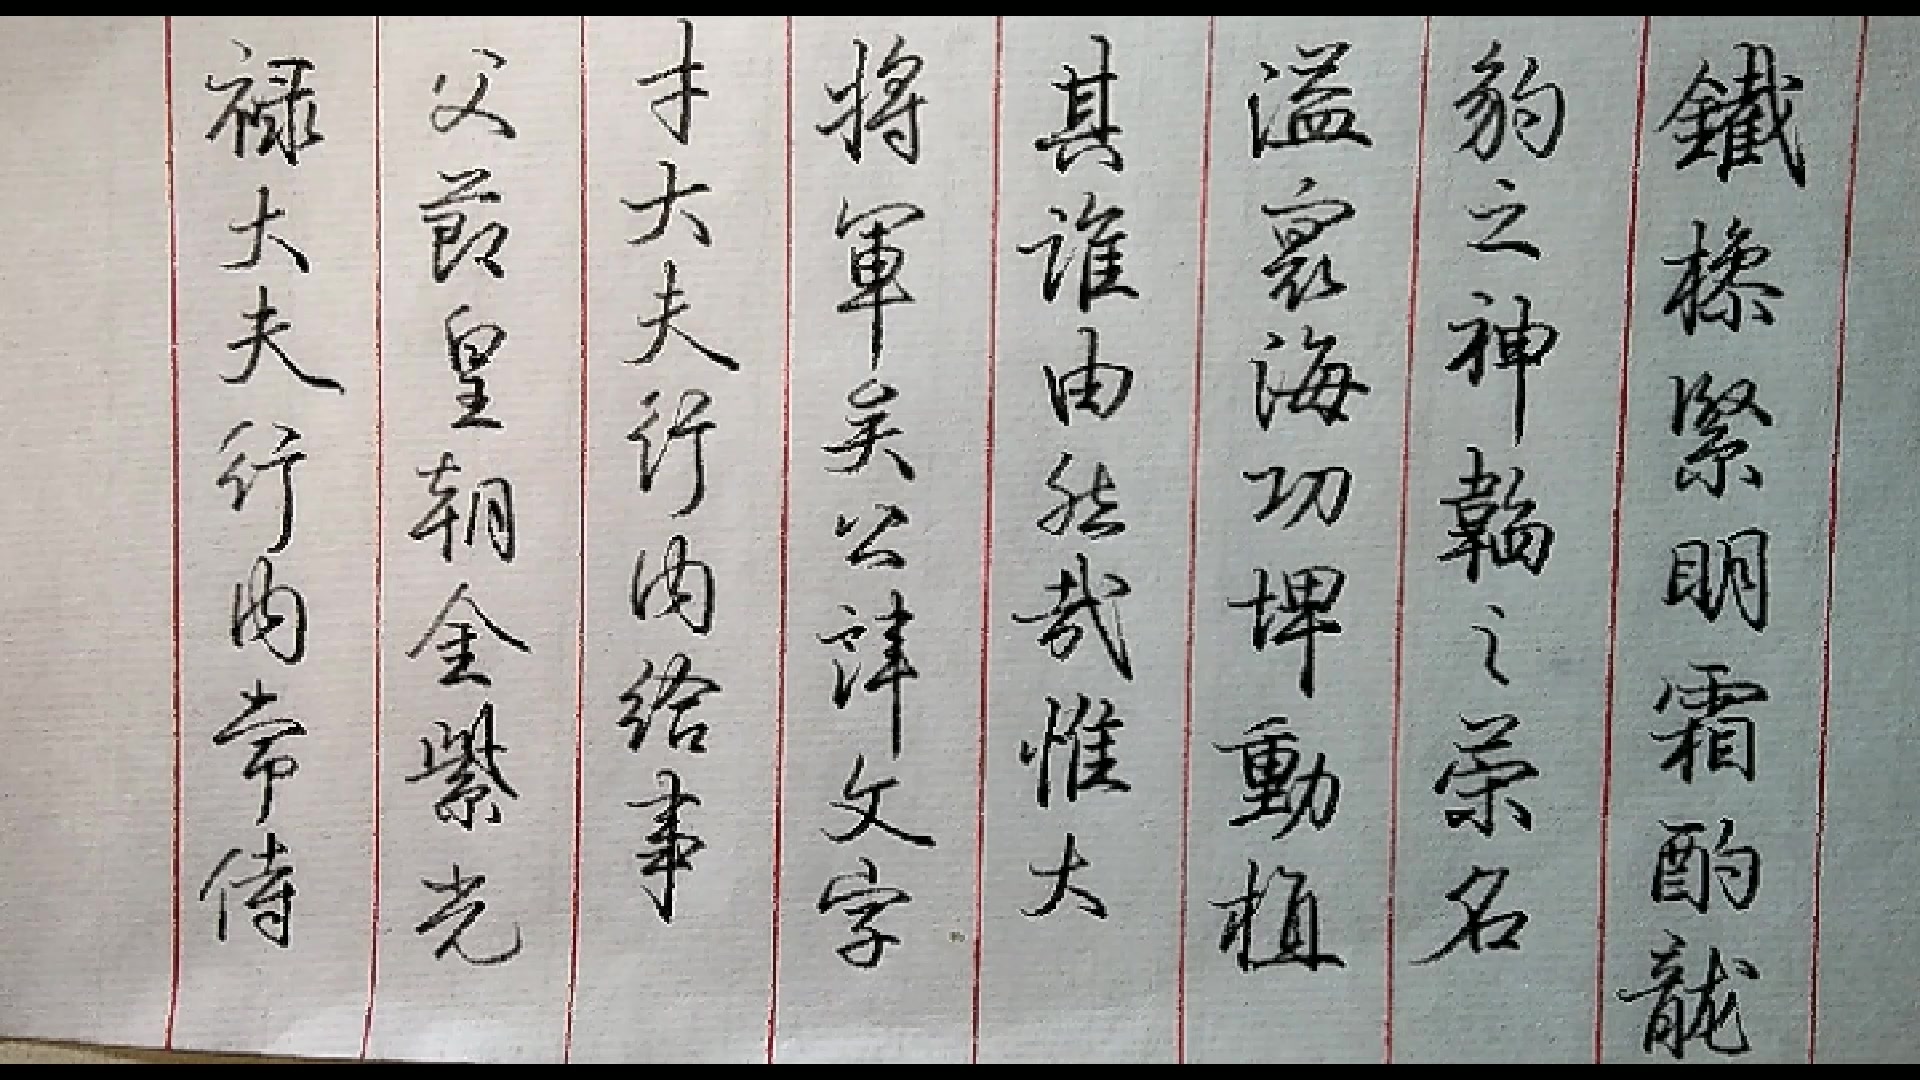 鐵楺緊明霜酌龍
豹之神韜之榮名
溢寰海功埤動植
其誰由然哉惟大
將軍矣公諱文字
才大夫行内給事
父節皇朝金紫光
禄大夫行内常侍